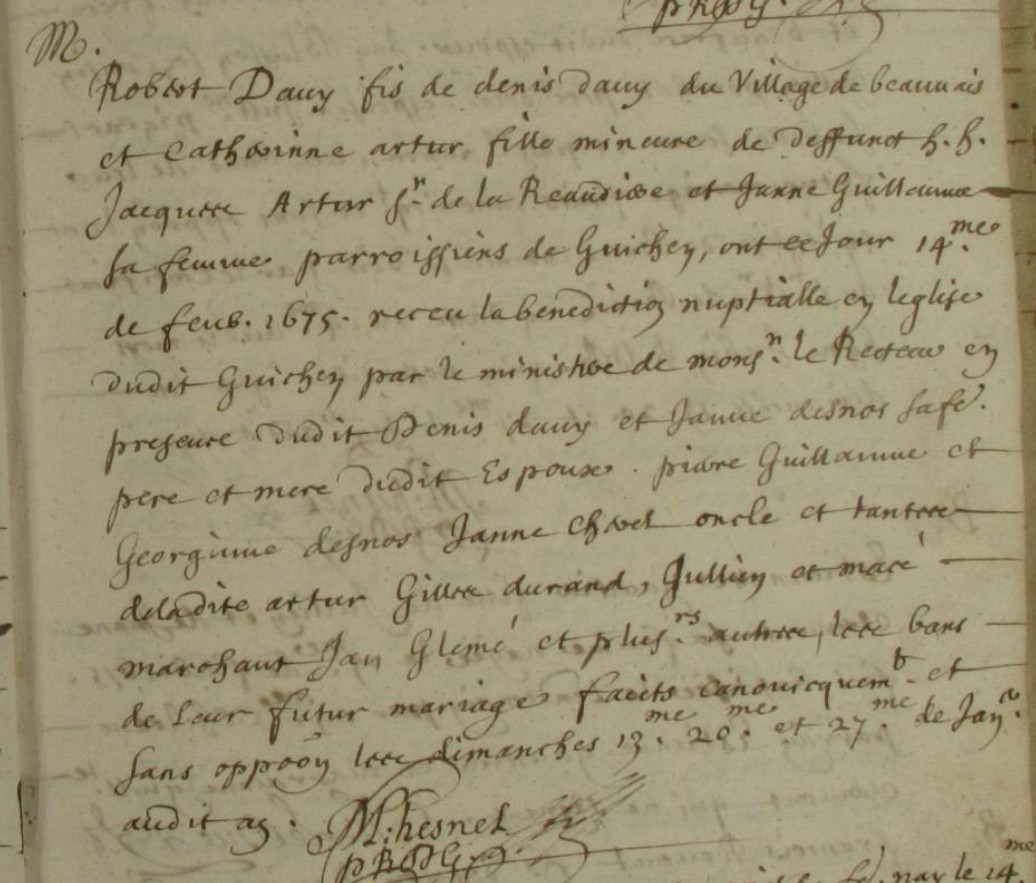 PRDG.
M.
Robert Davy fis de denis davy du Village de beauvais
et Catherinne artur fille mineure de deffunct h. h.
Jacques Artur sr. de la Reaudire et Janne Guillaume
sa femme parroissiens de Guichen, ont ce Jour 14.me
de feub. 1675. receu la benediction nuptialle en leglise
dudit Guichen par le ministre de monsr. le Recteur en
presence dudit Denis davy et Janne desnos sa fe.
pere et mere dudit Espoux. pierre Guillaume et
Georginne desnos Janne Chevet oncle et tantes
deladite artur Gilles durand, Jullien et macé
marchant Jan Glemé et plus.rs autres, les bans
de leur futur mariage faicts canonicquemt. et
sans oppoon les dimanches 13.me 20.me et 27.me de Janr.
audit an. M: hesnel
PRDG.
le 14.me